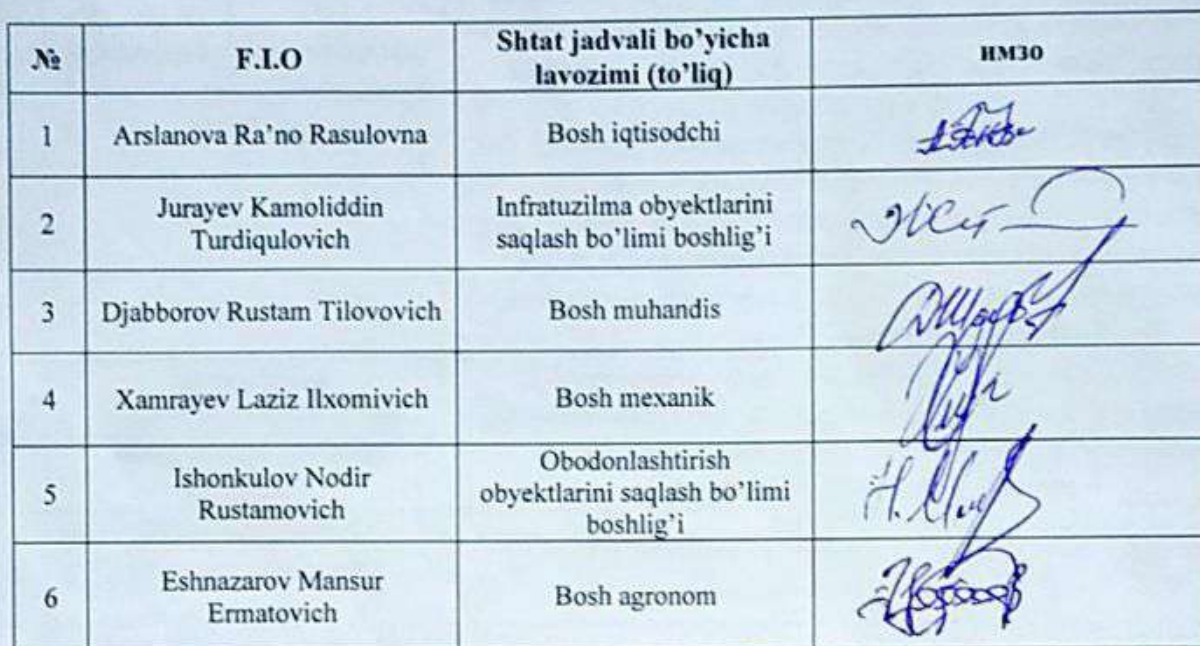 №
F.I.O
Shtat jadvali bo’yicha
lavozimi (to’liq)
имзо
1
Arslanova Ra’no Rasulovna
Bosh iqtisodchi
2
Jurayev Kamoliddin
Turdiqulovich
Infratuzilma obyektlarini
saqlash bo’limi boshlig’i
3
Djabborov Rustam Tilovovich
Bosh muhandis
4
Xamrayev Laziz Ilxomivich
Bosh mexanik
5
Ishonkulov Nodir
Rustamovich
Obodonlashtirish
obyektlarini saqlash bo’limi
boshlig’i
6
Eshnazarov Mansur
Ermatovich
Bosh agronom